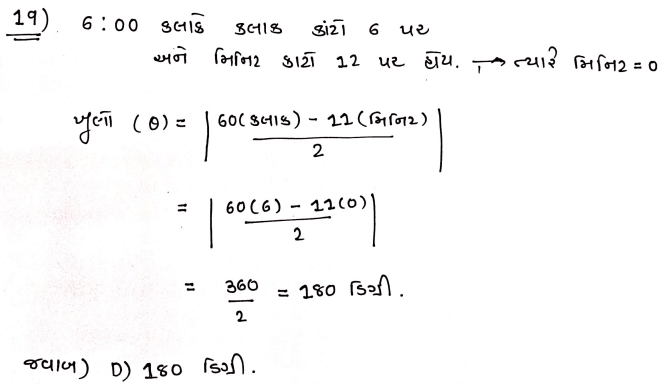 19) 6:00 કલાકે કલાક કાંટો 6 પર
અને મિનિટ કાટો 12 પર હોય. → ત્યારે મિનિટ = 0
ખૂણો (θ) = | 60(કલાક) - 11(મિનિટ) / 2 |
= | 60(6) - 11(0) / 2 |
= 360 / 2 = 180 ડિગ્રી.
જવાબ) D) 180 ડિગ્રી.